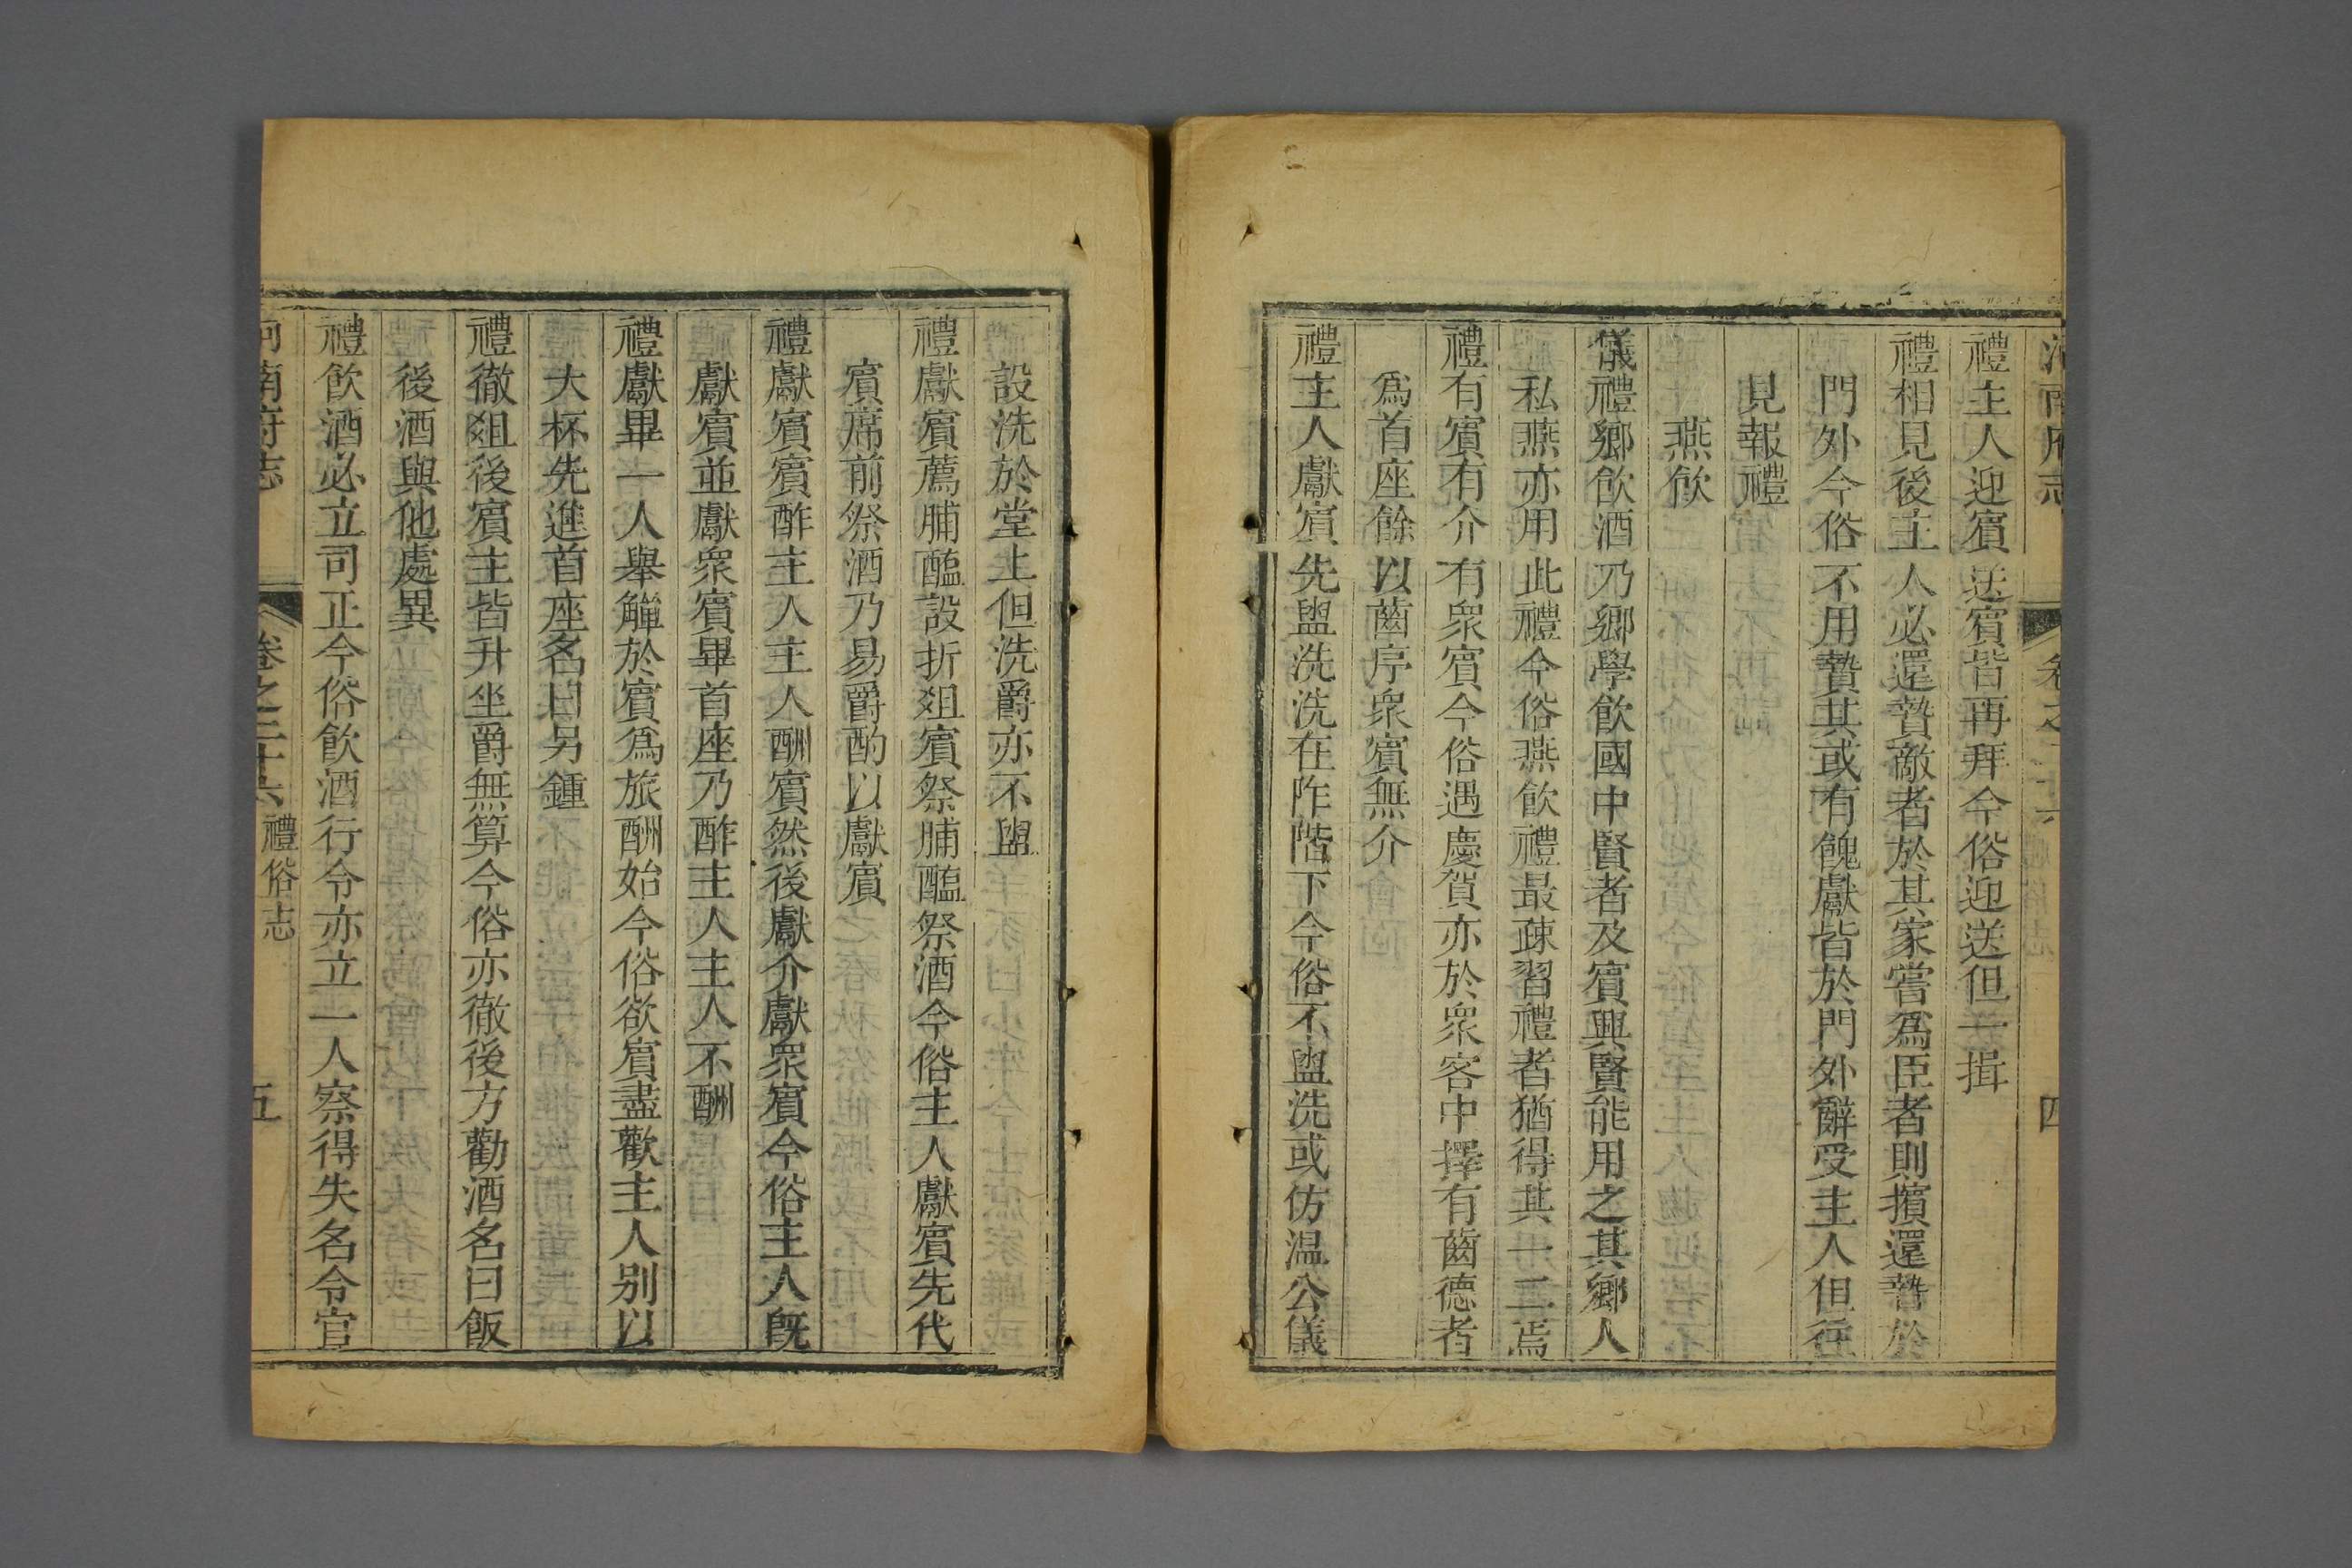 禮主人迎賓送賓皆再拜今俗迎送但一揖
禮相見後主人必還贄敵者於其家嘗爲臣者則擯還贄於
門外今俗不用贄其或有餽獻皆於門外辭受主人但往
見報禮
燕飲
儀禮鄉飲酒乃鄉學飲國中賢者及賓興賢能用之其鄉人
私燕亦用此禮今俗燕飲禮最疎習禮者猶得其一二焉
禮有賓有介有衆賓今俗遇慶賀亦於衆客中擇有齒德者
爲首座餘以齒序衆賓無介
禮主人獻賓先盥洗洗在阼階下今俗不盥洗或仿温公儀
設洗於堂上但洗爵亦不盥
禮獻賓薦脯醢設折俎賓祭脯醢祭酒今俗主人獻賓先代
賓席前祭酒乃易爵酌以獻賓
禮獻賓賓酢主人主人酬賓然後獻介獻衆賓今俗主人旣
獻賓並獻衆賓畢首座乃酢主人主人不酬
禮獻畢一人舉觶於賓爲旅酬始今俗欲賓盡歡主人别以
大杯先進首座名曰另鍾
禮徹俎後賓主皆升坐爵無算今俗亦徹後方勸酒名曰飯
後酒與他處異
禮飲酒必立司正今俗飲酒行令亦立一人察得失名令官
河南府志 卷之二十六 禮俗志 五